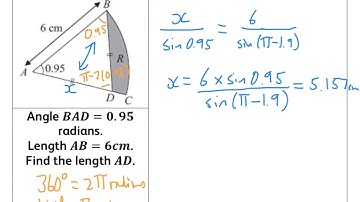 B
6 cm
0.95
A
0.95
R
x
π-2(0.95)
D C
x / sin 0.95 = 6 / sin(π-1.9)
x = 6 × sin 0.95 / sin(π-1.9) = 5.157cm
Angle BAD = 0.95
radians.
Length AB = 6cm.
Find the length AD.
360° = 2π radians